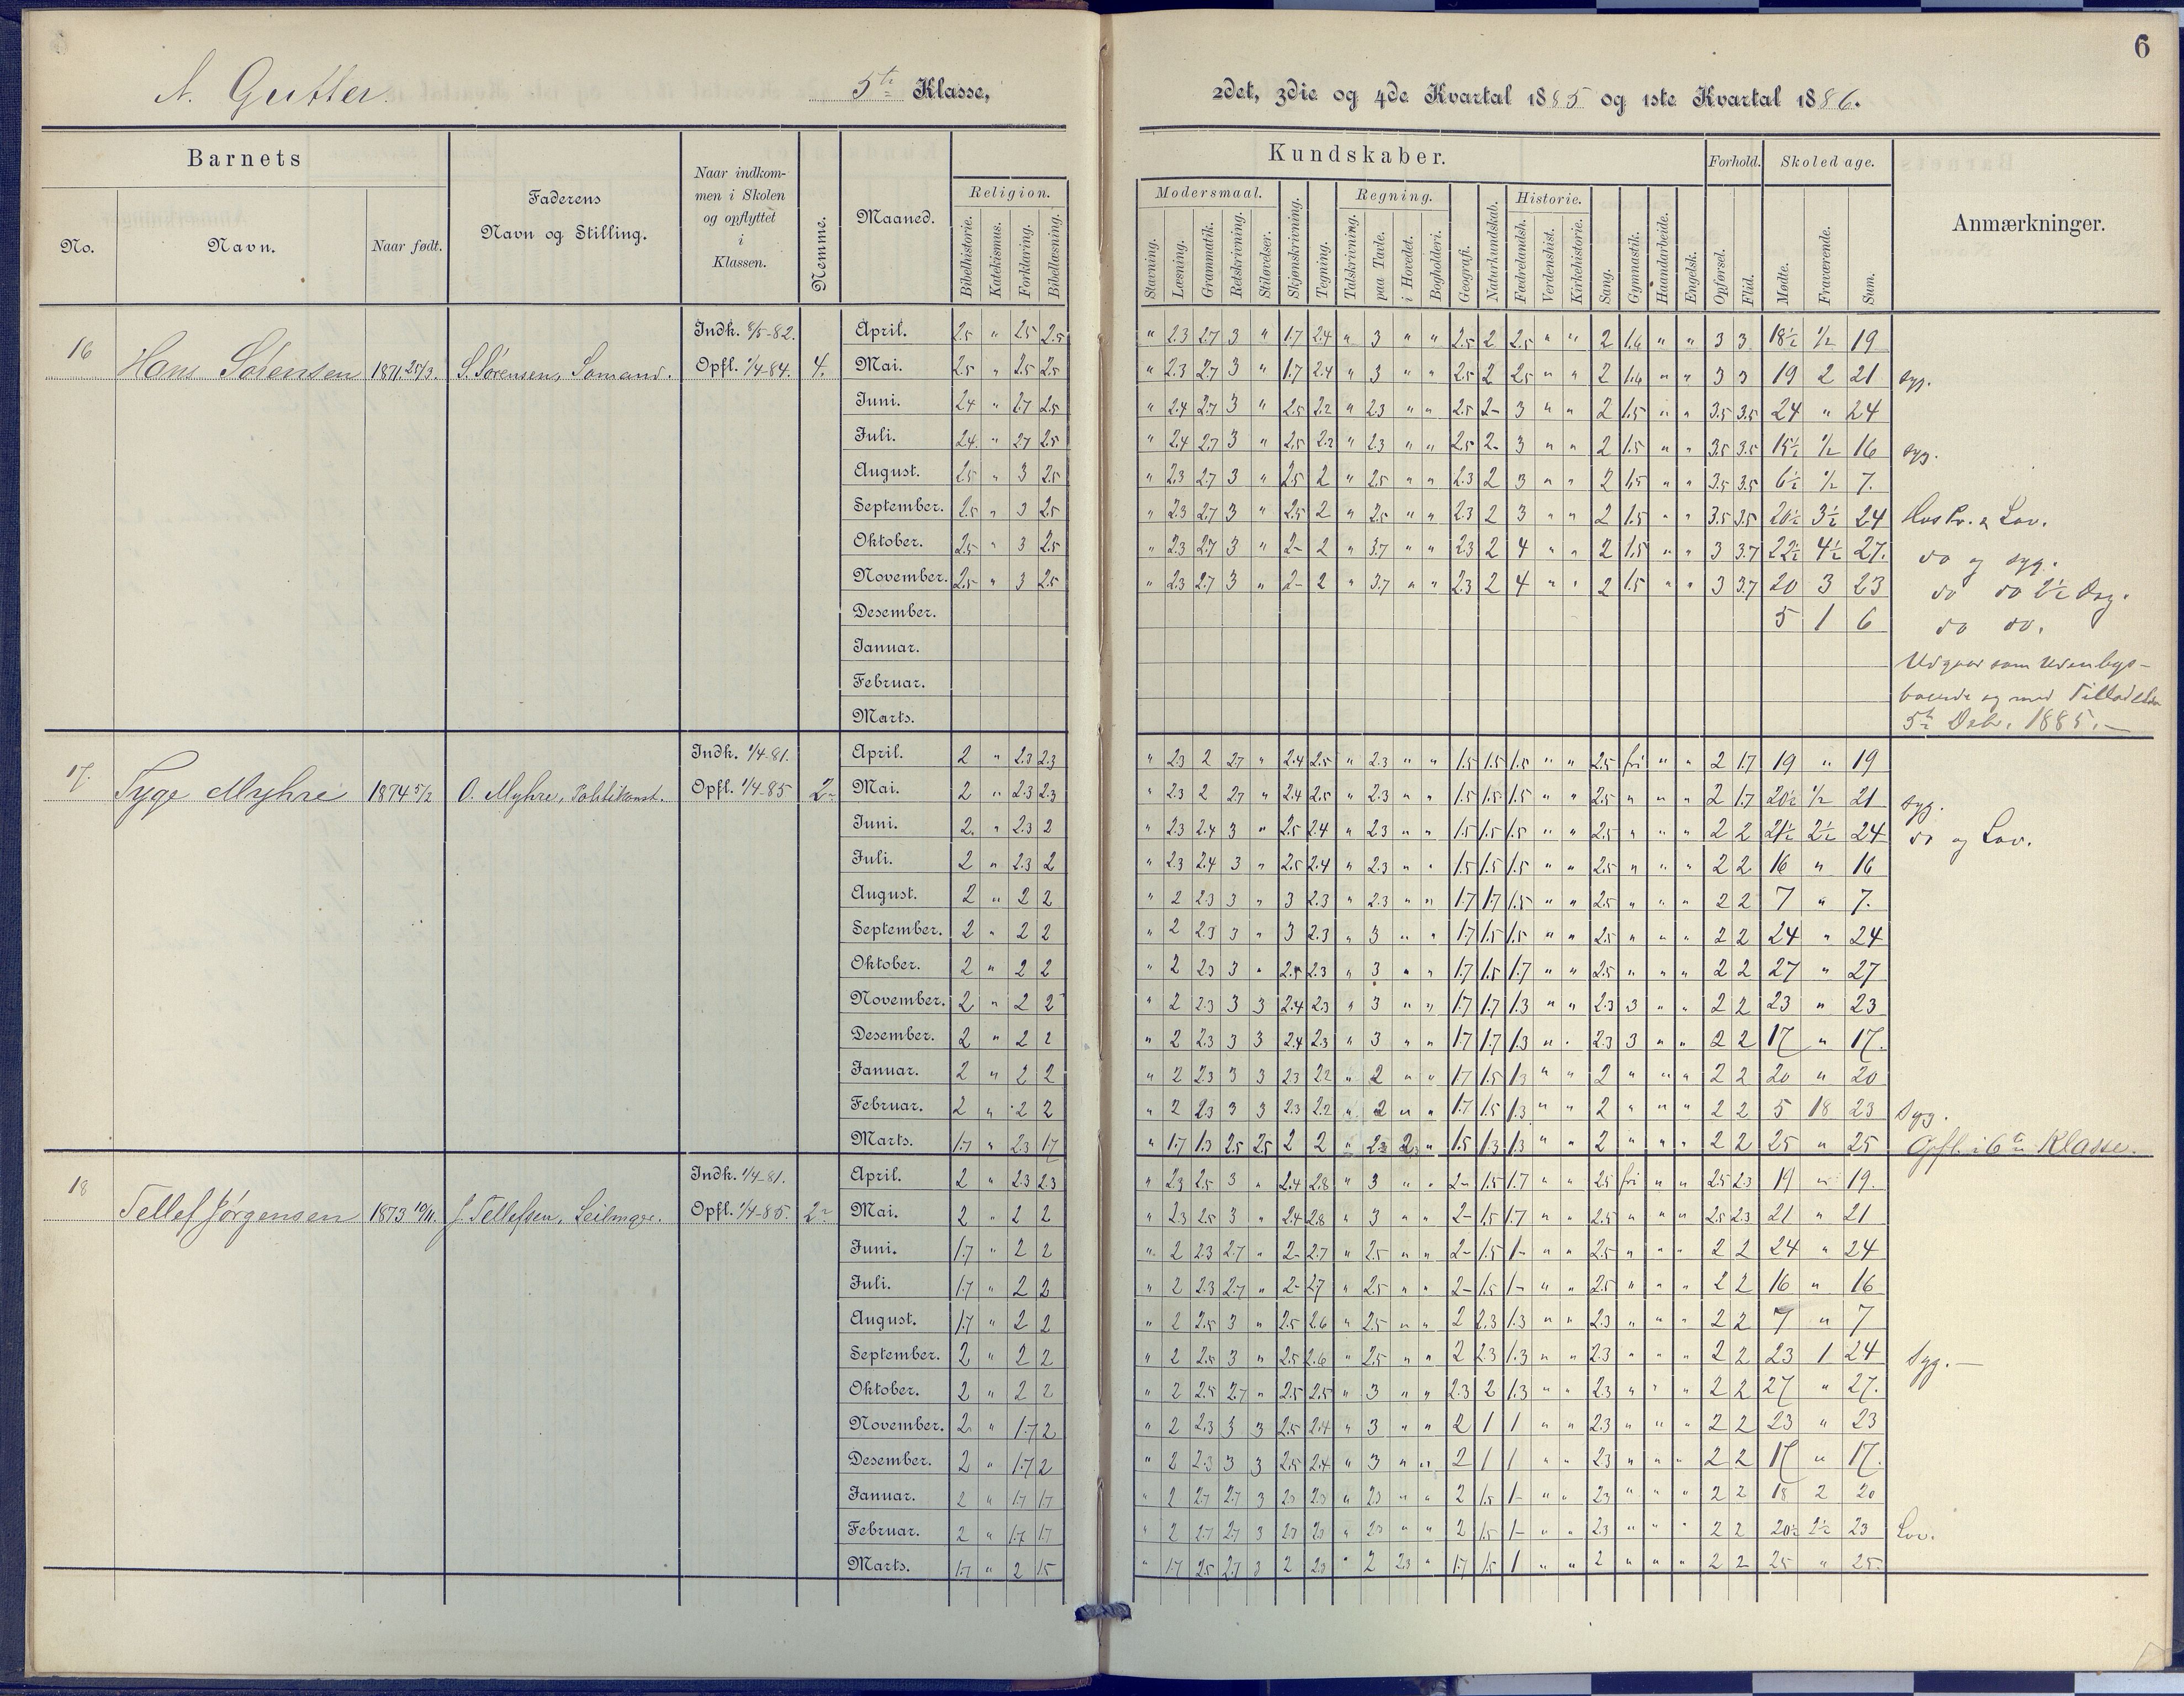 6
A. Gutter. 5te Klasse, 2det, 3die og 4de Kvartal 1885 og 1ste Kvartal 1886.
Barnets
No.
Navn.
Naar født.
Faderens
Navn og Stilling.
Naar indkom-
men i Skolen
og opflyttet
i
Klassen.
Nemme.
Maaned.
Religion.
Bibelhistorie.
Katekismus.
Forklaring.
Bibellæsning.
Kundskaber.
Modersmaal.
Stavning.
Læsning.
Grammatik.
Retskrivning.
Stiløvelser.
Skjønskrivning.
Tegning.
Regning.
Talskrivning.
paa Tavle.
i Hovedet.
Bogholderi.
Geografi.
Naturkundskab.
Historie.
Fædrelandsh.
Verdenshist.
Kirkehistorie.
Sang.
Gymnastik.
Haandarbeide.
Engelsk.
Forhold.
Opførsel.
Flid.
Skoledage.
Mødte.
Fraværende.
Sum.
Anmærkninger.
16 Hans Sørensen 1871 25/3. S. Sørensen, Sømand. Indk. 8/5-82. Opfl. 1/4-84. 4.
April. 2.5 " 2.5 2.5 " 2.3 2.7 3 " 1.7 2.4 " 3 " " 2.5 2 2.5 " " 2 1.6 " " 3 3 18½ ½ 19
Mai. 2.5 " 2.5 2.5 " 2.3 2.7 3 " 1.7 2.4 " 3 " " 2.5 2 2.5 " " 2 1.6 " " 3 3 19 2 21 syg.
Juni. 2.4 " 2.7 2.5 " 2.4 2.7 3 " 2.5 2.2 " 2.3 " " 2.5 2- 3 " " 2 1.5 " " 3.5 3.5 24 " 24
Juli. 2.4 " 2.7 2.5 " 2.4 2.7 3 " 2.5 2.2 " 2.3 " " 2.5 2- 3 " " 2 1.5 " " 3.5 3.5 15½ ½ 16 syg.
August. 2.5 " 3 2.5 " 2.3 2.7 3 " 2.5 2 " 2.5 " " 2.3 2 3 " " 2 1.5 " " 3.5 3.5 6½ ½ 7.
September. 2.5 " 3 2.5 " 2.3 2.7 3 " 2.5 2 " 2.5 " " 2.3 2 3 " " 2 1.5 " " 3.5 3.5 20½ 3½ 24 Lov.
Oktober. 2.5 " 3 2.5 " 2.3 2.7 3 " 2- 2 " 3.7 " " 2.3 2 4 " " 2 1.5 " " 3 3.7 22½ 4½ 27. do og syg.
November. 2.5 " 3 2.5 " 2.3 2.7 3 " 2- 2 " 3.7 " " 2.3 2 4 " " 2 1.5 " " 3 3.7 20 3 23 do do 2½ Dag.
Desember. 5 1 6 do do.
Januar. Udgaar som Udenbys-
Februar. boende og med Tilladelse
Marts. 5te Debr. 1885.-
17. Tyge Myhre 1874 5/2 O. Myhre, Politikonst. Indk. 1/4-81. Opfl. 1/4-85 2-
April. 2 " 2.3 2.3 " 2.3 2 2.7 " 2.4 2.5 " 2.3 " " 1.5 1.5 1.5 " " 2.5 fri " " 2 1.7 19 " 19
Mai. 2 " 2.3 2.3 " 2.3 2 2.7 " 2.4 2.5 " 2.3 " " 1.5 1.5 1.5 " " 2.5 " " " 2 1.7 20½ ½ 21 syg.
Juni. 2. " 2.3 2 " 2.3 2.4 3 " 2.5 2.4 " 2.3 " " 1.5 1.5 1.5 " " 2.5 " " " 2 2 21½ 2½ 24 do og Lov.
Juli. 2 " 2.3 2 " 2.3 2.4 3 " 2.5 2.4 " 2.3 " " 1.5 1.5 1.5 " " 2.5 " " " 2 2 16 " 16
August. 2 " 2 2 " 2 2.3 3 " 3 2.3 " 2.3 " " 1.7 1.7 1.5 " " 2.5 " " " 2 2 7 " 7.
September. 2 " 2 2 " 2 2.3 3 " 3 2.3 " 3 " " 1.7 1.5 1.5 " " 2.5 " " " 2 2 24 " 24
Oktober. 2 " 2 2 " 2 2.3 3 " 2.5 2.3 " 3 " " 1.7 1.5 1.7 " " 2.5 " " " 2 2 27 " 27
November. 2 " 2 2 " 2 2.3 3 3 2.4 2.3 " 3 " " 1.7 1.7 1.3 " " 2.3 3 " " 2 2 23 " 23
Desember. 2 " 2 2 " 2 2.3 3 3 2.4 2.3 " 3 " " 1.7 1.7 1.3 " " 2.3 3 " " 2 2 17 " 17.
Januar. 2 " 2 2 " 2 2.3 3 3 2.3 2.2 " 2 " " 1.7 1.5 1.3 " " 2 " " " 2 2 20 " 20
Februar. 2 " 2 2 " 2 2.3 3 3 2.3 2.2 " 2 " " 1.7 1.5 1.3 " " 2 " " " 2 2 5 18 23 Syg.
Marts. 1.7 " 2.3 1.7 " 1.7 1.3 2.5 2.5 2 2 " 2.3 2. " 1.5 1.3 1.3 " " 2 " " " 2 2 25 " 25 Opfl. i 6te Klasse.
18 Tellef Jørgensen 1873 10/11. J. Tellefsen, Seilmager. Indk. 1/4-81. Opfl. 1/4-85. 2-
April. 2 " 2.3 2.3 " 2.3 2.5 3 " 2.4 2.8 " 3 " " 2- 1.5 1.7 " " 2.5 fri " " 2.5 2.3 19 " 19.
Mai. 2 " 2 2 " 2.3 2.5 3 " 2.4 2.8 " 3 " " 2- 1.5 1.7 " " 2.5 " " " 2.5 2.3 21 " 21
Juni. 1.7 " 2 2 " 2 2.3 2.7 " 2- 2.7 " 2.5 " " 2- 1.5 1- " " 2.5 " " " 2 2 24 " 24
Juli. 1.7 " 2 2 " 2 2.3 2.7 " 2- 2.7 " 2.5 " " 2- 1.5 1- " " 2.5 " " " 2 2 16 " 16
August. 1.7 " 2 2 " 2 2.5 3 " 2.5 2.6 " 2.5 " " 2 2.3 1.3 " " 2.3 " " " 2 2 7 " 7
September. 2 " 2 2 " 2 2.5 3 " 2.5 2.6 " 2.5 " " 2 2.3 1.3 " " 2.3 " " " 2 2 23 1 24 Syg.-
Oktober. 2 " 2 2 " 2 2.5 2.7 " 2.5 2.5 " 3 " " 2.3 2 1.3 " " 2.3 " " " 2 2 27 " 27.
November. 2 " 1.7 2 " 2 2.3 3 3 2.5 2.4 " 3 " " 2 1 1 " " 2.3 " " " 2 2 23 " 23
Desember. 2 " 1.7 2 " 2 2.3 3 3 2.5 2.4 " 3 " " 2 1 1 " " 2.3 " " " 2 2 17 " 17.
Januar. 2 " 1.7 1.7 " 2 2.7 2.7 3 2.3 2.3 " 2.3 " " 2 1.5 1- " " 2.3 " " " 2 2 18 2 20
Februar. 2 " 1.7 1.7 " 2 2.7 2.7 3 2.3 2.3 " 2.3 " " 2 1.5 1- " " 2.3 " " " 2 2 20½ 2½ 23 Lov.
Marts. 1.7 " 2 1.5 " 1.7 2.5 2.7 3 2 2.3 " 2 2.3 " 1.7 1.5 1 " " 2 " " " 2 2 25 " 25.